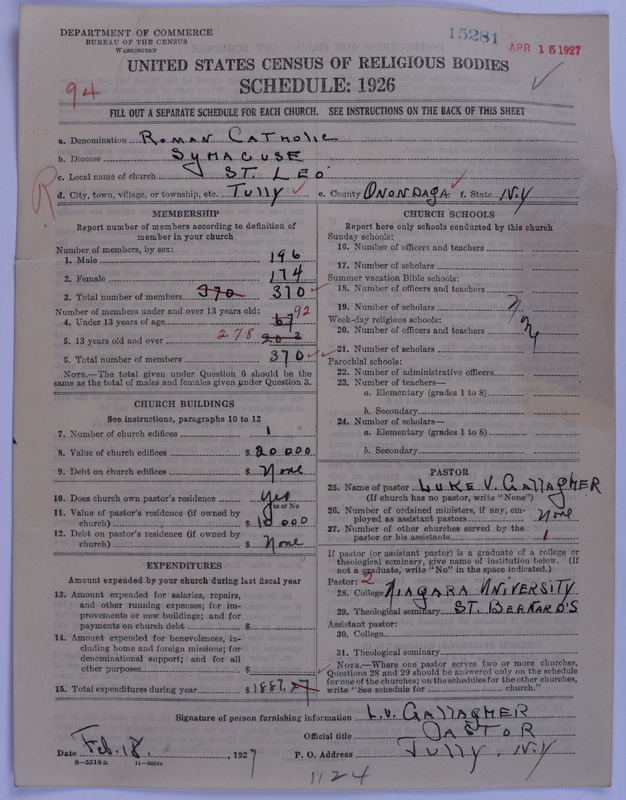 DEPARTMENT OF COMMERCE
BUREAU OF THE CENSUS
WASHINGTON
15281
APR 15 1927
UNITED STATES CENSUS OF RELIGIOUS BODIES
SCHEDULE: 1926
94
FILL OUT A SEPARATE SCHEDULE FOR EACH CHURCH. SEE INSTRUCTIONS ON THE BACK OF THIS SHEET
a. Denomination ROMAN CATHOLIC
b. Diocese SYRACUSE
c. Local name of church ST. LEO
d. City, town, village, or township, etc. Tully e. County ONONDAGA f. State N.Y
R
MEMBERSHIP
Report number of members according to definition of
member in your church
Number of members, by sex:
1. Male 196
2. Female 174
3. Total number of members 370 370
Number of members under and over 13 years old:
4. Under 13 years of age 67 92
5. 13 years old and over 278 203
6. Total number of members 370
NOTE.—The total given under Question 6 should be the
same as the total of males and females given under Question 3.
CHURCH BUILDINGS
See instructions, paragraphs 10 to 12
7. Number of church edifices 1
8. Value of church edifices $ 20 000
9. Debt on church edifices $ None
10. Does church own pastor's residence Yes
Yes or No
11. Value of pastor's residence (if owned by
church) $ 10 000
12. Debt on pastor's residence (if owned by
church) $ None
EXPENDITURES
Amount expended by your church during last fiscal year
13. Amount expended for salaries, repairs,
and other running expenses; for im-
provements or new buildings; and for
payments on church debt $
14. Amount expended for benevolences, in-
cluding home and foreign missions; for
denominational support; and for all
other purposes $
15. Total expenditures during year $ 1887.
CHURCH SCHOOLS
Report here only schools conducted by this church
Sunday schools:
16. Number of officers and teachers
17. Number of scholars
Summer vacation Bible schools:
18. Number of officers and teachers
19. Number of scholars
Week-day religious schools:
20. Number of officers and teachers
21. Number of scholars
Parochial schools:
22. Number of administrative officers
23. Number of teachers—
a. Elementary (grades 1 to 8)
b. Secondary
24. Number of scholars—
a. Elementary (grades 1 to 8)
b. Secondary
PASTOR
25. Name of pastor LUKE V. GALLAGHER
(If church has no pastor, write "None")
26. Number of ordained ministers, if any, em-
ployed as assistant pastors None
27. Number of other churches served by the
pastor or his assistants 1
If pastor (or assistant pastor) is a graduate of a college or
theological seminary, give name of institution below. (If
not a graduate, write "No" in the space indicated.)
Pastor: 2
28. College NIAGARA UNIVERSITY
29. Theological seminary ST. BERNARD'S
Assistant pastor:
30. College
31. Theological seminary
NOTE.—Where one pastor serves two or more churches,
Questions 28 and 29 should be answered only on the schedule
for one of the churches; on the schedules for the other churches,
write "See schedule for church."
Signature of person furnishing information L.V. GALLAGHER
Official title PASTOR
Date Feb. 18, 1927 P. O. Address Tully, N.Y
8—5518a
1124